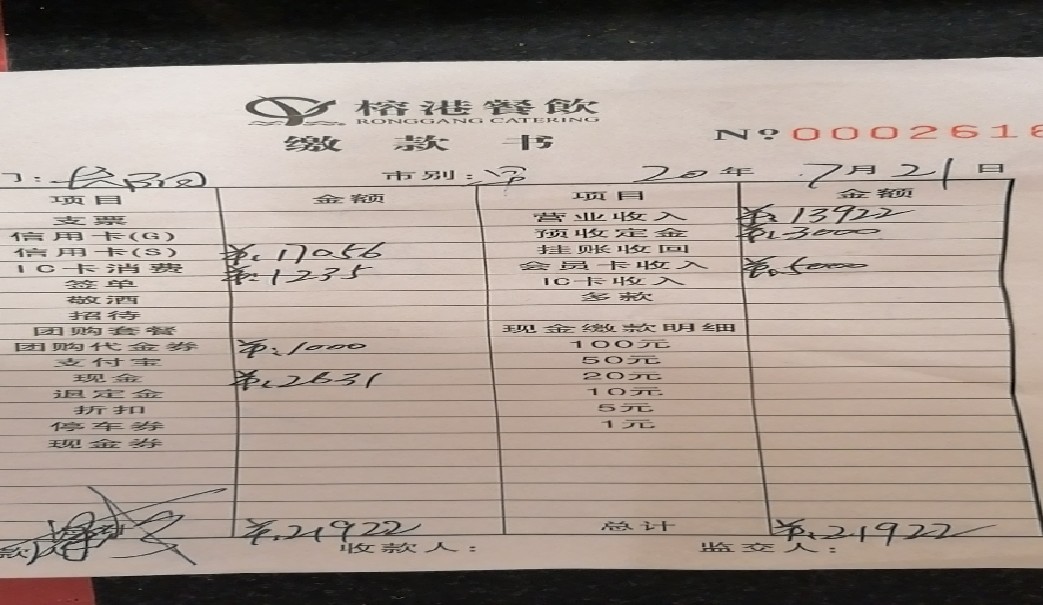 榕港餐飲
RONGGANG CATERING
缴款书 Nº 0002618
门: 长阳 市别: 20年 7月21日
项目 金额 项目 金额
支票 营业收入 ¥:13922
信用卡(G) 预收定金 ¥:3000
信用卡(S) ¥:17056 挂账收回
IC卡消费 ¥:1235 会员卡收入 ¥:5000
签单 IC卡收入
敬酒 多款
招待
团购套餐 现金缴款明细
团购代金券 ¥:1000 100元
支付宝 50元
现金 ¥:2631 20元
退定金 10元
折扣 5元
停车券 1元
现金券
¥:21922 总计 ¥:21922
款人 收款人: 监交人: